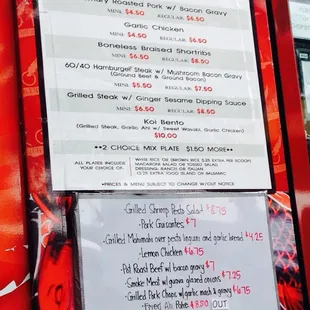 Roasted Pork w/ Bacon Gravy
MINI: $4.50 REGULAR: $6.50
Garlic Chicken
MINI: $4.50 REGULAR: $6.50
Boneless Braised Shortribs
MINI: $6.50 REGULAR: $8.50
60/40 Hamburger Steak w/ Mushroom Bacon Gravy
(Ground Beef & Ground Bacon)
MINI: $5.50 REGULAR: $7.50
Grilled Steak w/ Ginger Sesame Dipping Sauce
MINI: $6.50 REGULAR: $8.50
Koi Bento
(Grilled Steak, Garlic Ahi w/ Sweet Wasabi, Garlic Chicken)
$10.00
**2 CHOICE MIX PLATE $1.50 MORE**
ALL PLATES INCLUDE
YOUR CHOICE OF
WHITE RICE OR BROWN RICE
MACARONI SALAD OR TOSSED SALAD
DRESSING: RANCH OR ITALIAN
*PRICES & MENU SUBJECT TO CHANGE W/OUT NOTICE
-Grilled Shrimp Pesto Salad $8.75
-Pork $7
-Grilled Mahimahi over pesto linguini and garlic bread
-Lemon Chicken $6.75
-Pot Roast Beef w/ bacon gravy $7
-Smoke Meat w/ guava glazed onions $7.25
-Grilled Pork Chops w/ garlic mash & gravy $6.75
-Fried Ahi $8.50 OUT